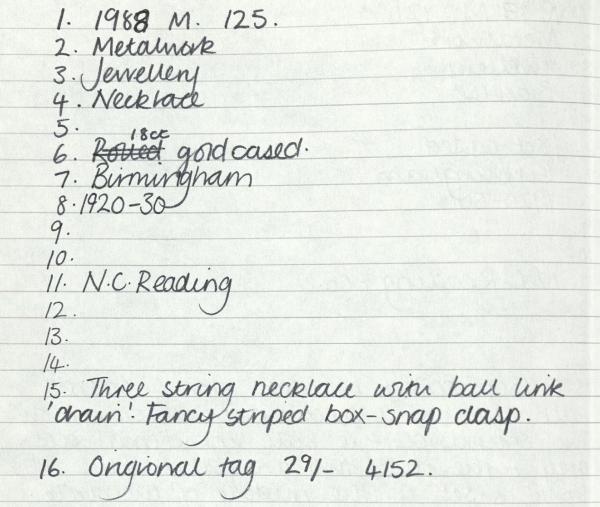 1. 1988 M. 125.
2. Metalwork
3. Jewellery
4. Necklace
5.
6. Rolled 18ct gold cased.
7. Birmingham
8. 1920-30
9.
10.
11. N.C. Reading
12.
13.
14.
15. Three string necklace with ball link
'chain'. Fancy striped box-snap clasp.
16. Origional tag 29/- 4152.